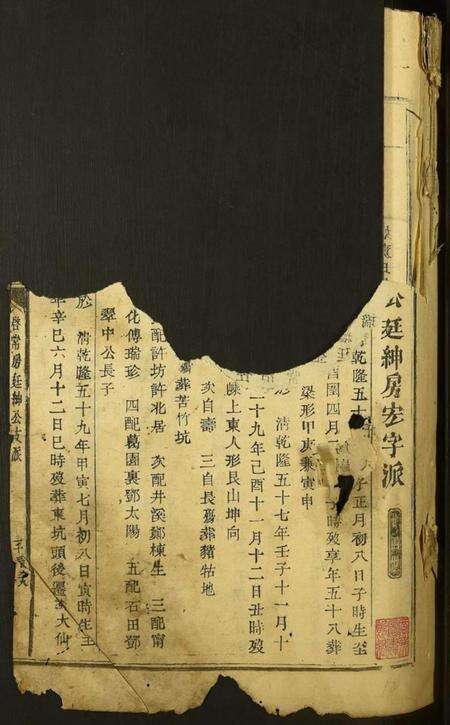 公廷紳房宏字派
乾隆五十 子正月初八日子時生至
四月 時歿享年五十八葬
梁形甲庚兼寅申
清乾隆五十七年壬子十一月十
二十九年己酉十一月十二日丑時歿
上東人形艮山坤向
次自壽 三自長殤葬豬牯地
葬苦竹坑
配許坊許北居 次配井溪鄭棟生 三配甯
化傅瑞珍 四配葛園裏鄧太陽 五配石田鄧
翠中公長子
於 清乾隆五十九年甲寅七月初八日寅時生至
年辛巳六月十二日巳時歿葬東坑頭後 大仙
啓常房廷紳公支派